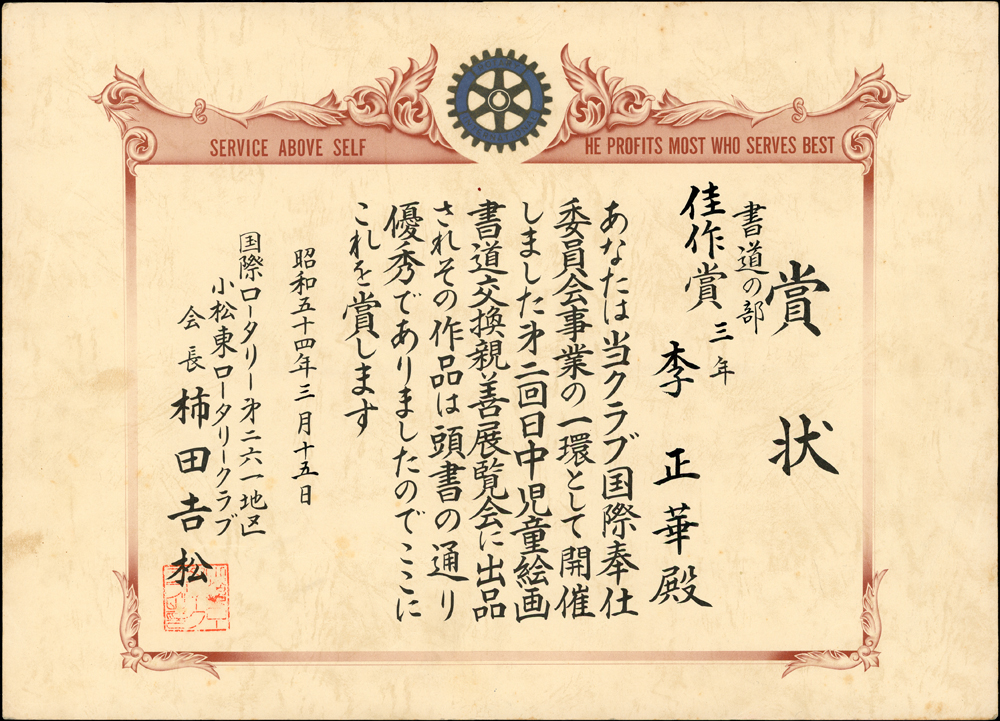 ROTARY
INTERNATIONAL
SERVICE ABOVE SELF
HE PROFITS MOST WHO SERVES BEST
賞状
書道の部
佳作賞 三年
李正華殿
あなたは当クラブ国際奉仕
委員会事業の一環として開催
しました才二回日中児童絵画
書道交換親善展覧会に出品
されその作品は頭書の通り
優秀でありましたのでここに
これを賞します
昭和五十四年三月十五日
国際ロータリー才二六一地区
小松東ロータリークラブ
会長 柿田吉松